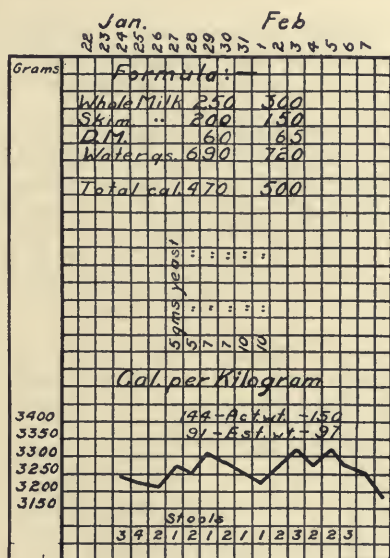 Jan. Feb
22 23 24 25 26 27 28 29 30 31 1 2 3 4 5 6 7
Grams
Formula:—
Whole Milk 250 300
Skim. " 200 150
D.M. 60 65
Water qs. 690 720
Total cal. 470 500
5 gms yeast " " " " "
5 7 7 10 10
Cal. per Kilogram
3400
144-Act. wt.-150
3350
91-Est. wt.-97
3300
3250
3200
3150
Stools
3 4 2 1 2 1 2 1 1 2 2 2 3